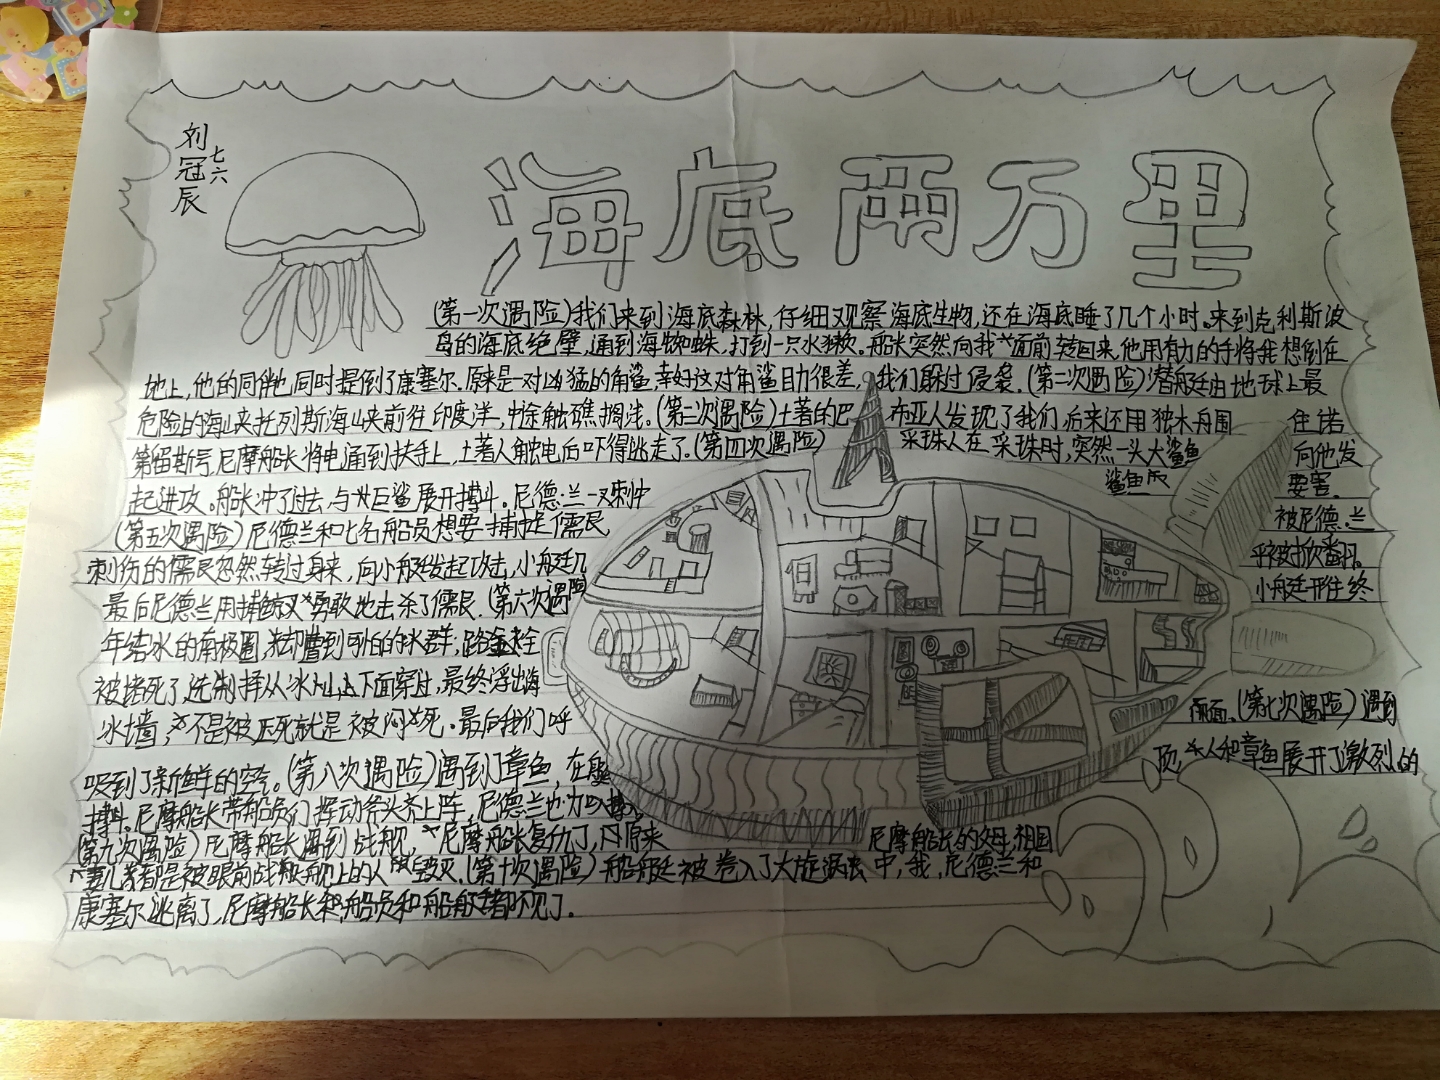 刘冠辰
七六
海底两万里
(第一次遇险)我们来到海底森林,仔细观察海底生物,还在海底睡了几个小时。来到克利斯波
岛的海底绝壁,遇到海蜘蛛,打到一只水獭。船长突然向我面前转回来,他用有力的手将我想倒在
地上,他的同伴也同时提倒了康塞尔。原来是一对凶猛的角鲨,幸好这对角鲨目力很差,我们躲过侵袭。(第二次遇险)潜艇由地球上最
危险的海峡托列斯海峡前往印度洋,中途触礁搁浅。(第三次遇险)土著的巴布亚人发现了我们,后来还用独木舟围住诺
第留斯号,尼摩船长将电通到扶手上,土著人触电后吓得逃走了。(第四次遇险)采珠人在采珠时,突然一头大鲨鱼向他发
起进攻。船长冲了过去,与巨鲨展开搏斗。尼德.兰一叉刺中鲨鱼 要害。
(第五次遇险)尼德兰和七名船员想要捕捉儒艮 被尼德.兰
刺伤的儒艮忽然转过身来,向小艇发起攻击,小艇几乎被掀翻。
最后尼德兰用捕鲸叉勇敢地击杀了儒艮.(第六次遇险 小艇
年结冰的南极圈,却遭到可怕的冰群,路全
被堵死了,选择从冰山下面穿过,最终浮出海 面。(第七次遇险)遇到
冰墙,不是被压死就是被闷死。最后我们呼
吸到了新鲜的空气。(第八次遇险)遇到了章鱼,在 顶,人和章鱼展开了激烈的
搏斗.尼摩船长带船员们挥动斧头齐上阵,尼德兰也加入
(第九次遇险)尼摩船长遇到战舰,尼摩船长复仇了,原来 尼摩船长的父母,祖国
妻儿都是被眼前战舰上的人毁灭.(第十次遇险)船艇被卷入了大旋涡 中,我,尼德兰和
康塞尔逃离了,尼摩船长和船员和船艇都不见了.